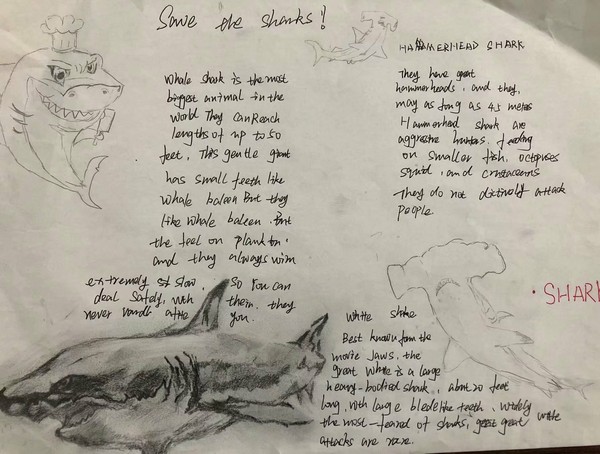 Save the sharks!
Whale shark is the most
biggest animal in the
world They can reach
lengths of up to 50
feet, This gentle giant
has small teeth like
whale baleen But they
like whale baleen. But
the feel on plankton.
and they always wim
extremely slow, So you can
deal safely, with them. they
never you.
HAMMERHEAD SHARK
They have great
hammerheads, and they,
may as long as 4.5 metes
Hammerhead shark are
aggressive hunters. feeding
on smaller fish, octopuses
squid, and crustaceans
They do not attack
people.
• SHARK
White
Best known from the
movie Jaws. the
great white is a large
heavy-bodied shark, about 20 feet
long, with large bladelike teeth, widely
the most-feared of sharks, great white
attacks are rare.